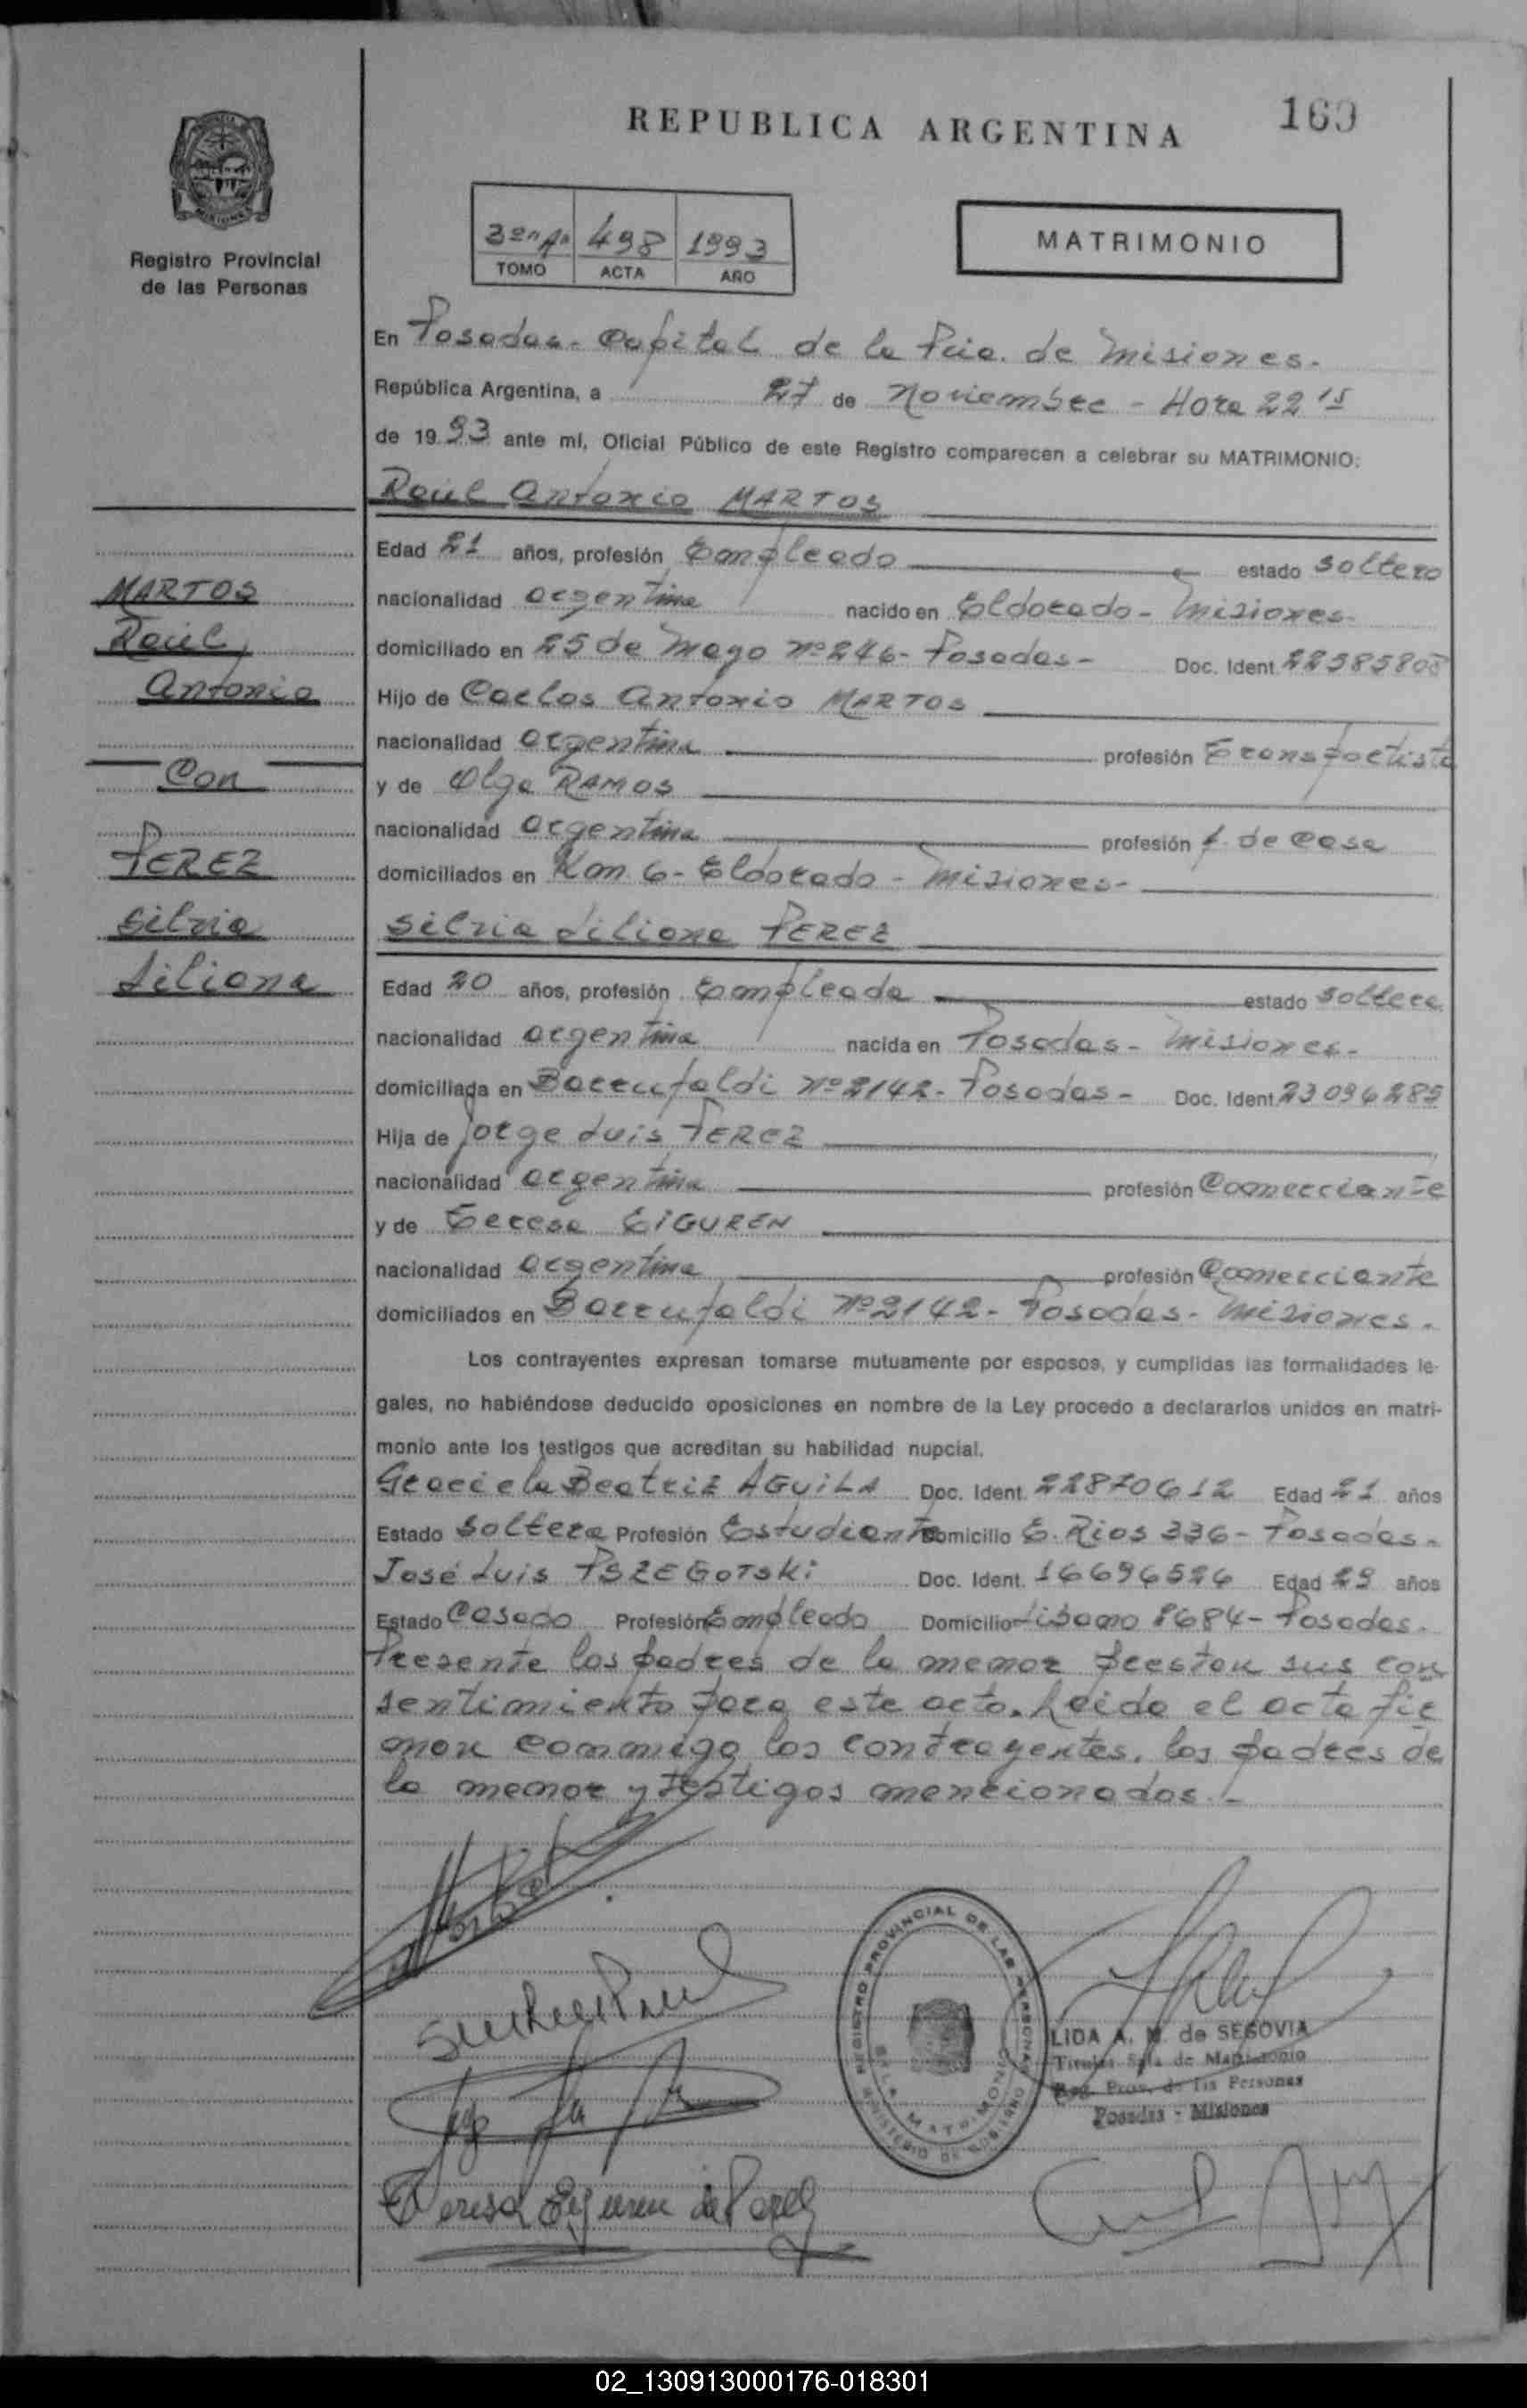 REPUBLICA ARGENTINA
169
Registro Provincial
de las Personas
3º "A" 498 1993
TOMO ACTA AÑO
MATRIMONIO
En Posadas- Capital de la Pcia. de Misiones.
República Argentina, a 27 de Noviembre - Hora 22 15
de 1993 ante mí, Oficial Público de este Registro comparecen a celebrar su MATRIMONIO:
Raúl Antonio MARTOS
Edad 21 años, profesión Empleado estado soltero
MARTOS
nacionalidad argentina nacido en Eldorado- Misiones-
Raúl
domiciliado en 25 de Mayo Nº 246- Posadas- Doc. Ident. 22585808
Antonio
Hijo de Carlos Antonio MARTOS
nacionalidad argentina profesión Transportista
Con
y de Olga RAMOS
nacionalidad argentina profesión A. de Casa
PEREZ
domiciliados en Km 6- Eldorado - Misiones-
Silvia
Silvia Liliana PEREZ
Liliana
Edad 20 años, profesión Empleada estado soltera
nacionalidad argentina nacida en Posadas- Misiones-
domiciliada en Barrufaldi Nº 2142- Posadas- Doc. Ident. 23096285
Hija de Jorge Luis PEREZ
nacionalidad argentina profesión Comerciante
y de Teresa EIGUREN
nacionalidad argentina profesión Comerciante
domiciliados en Barrufaldi Nº 2142- Posadas- Misiones.
Los contrayentes expresan tomarse mutuamente por esposos, y cumplidas las formalidades le-
gales, no habiéndose deducido oposiciones en nombre de la Ley procedo a declararlos unidos en matri-
monio ante los testigos que acreditan su habilidad nupcial.
Graciela Beatriz AGUILA Doc. Ident. 22870612 Edad 21 años
Estado Soltera Profesión Estudiante Domicilio E. Rios 336- Posadas-
José Luis PSZEGOTSKi Doc. Ident. 16696526 Edad 29 años
Estado Casado Profesión Empleado Domicilio Líbano 8684- Posadas.
Presente los padres de la menor prestan sus con
sentimiento para este acto. Leida el acta fir
man conmmigo los contrayentes, los padres de
la menor y testigos mencionados.-
REGISTRO PROVINCIAL DE LAS PERSONAS
SALA MATRIMONIO
MINISTERIO DE GOBIERNO
LIDA A. M. de SEGOVIA
Titular Sala de Matrimonio
Reg. Prov. de las Personas
Posadas - Misiones
Teresa Eiguren de Perez
02_130913000176-018301